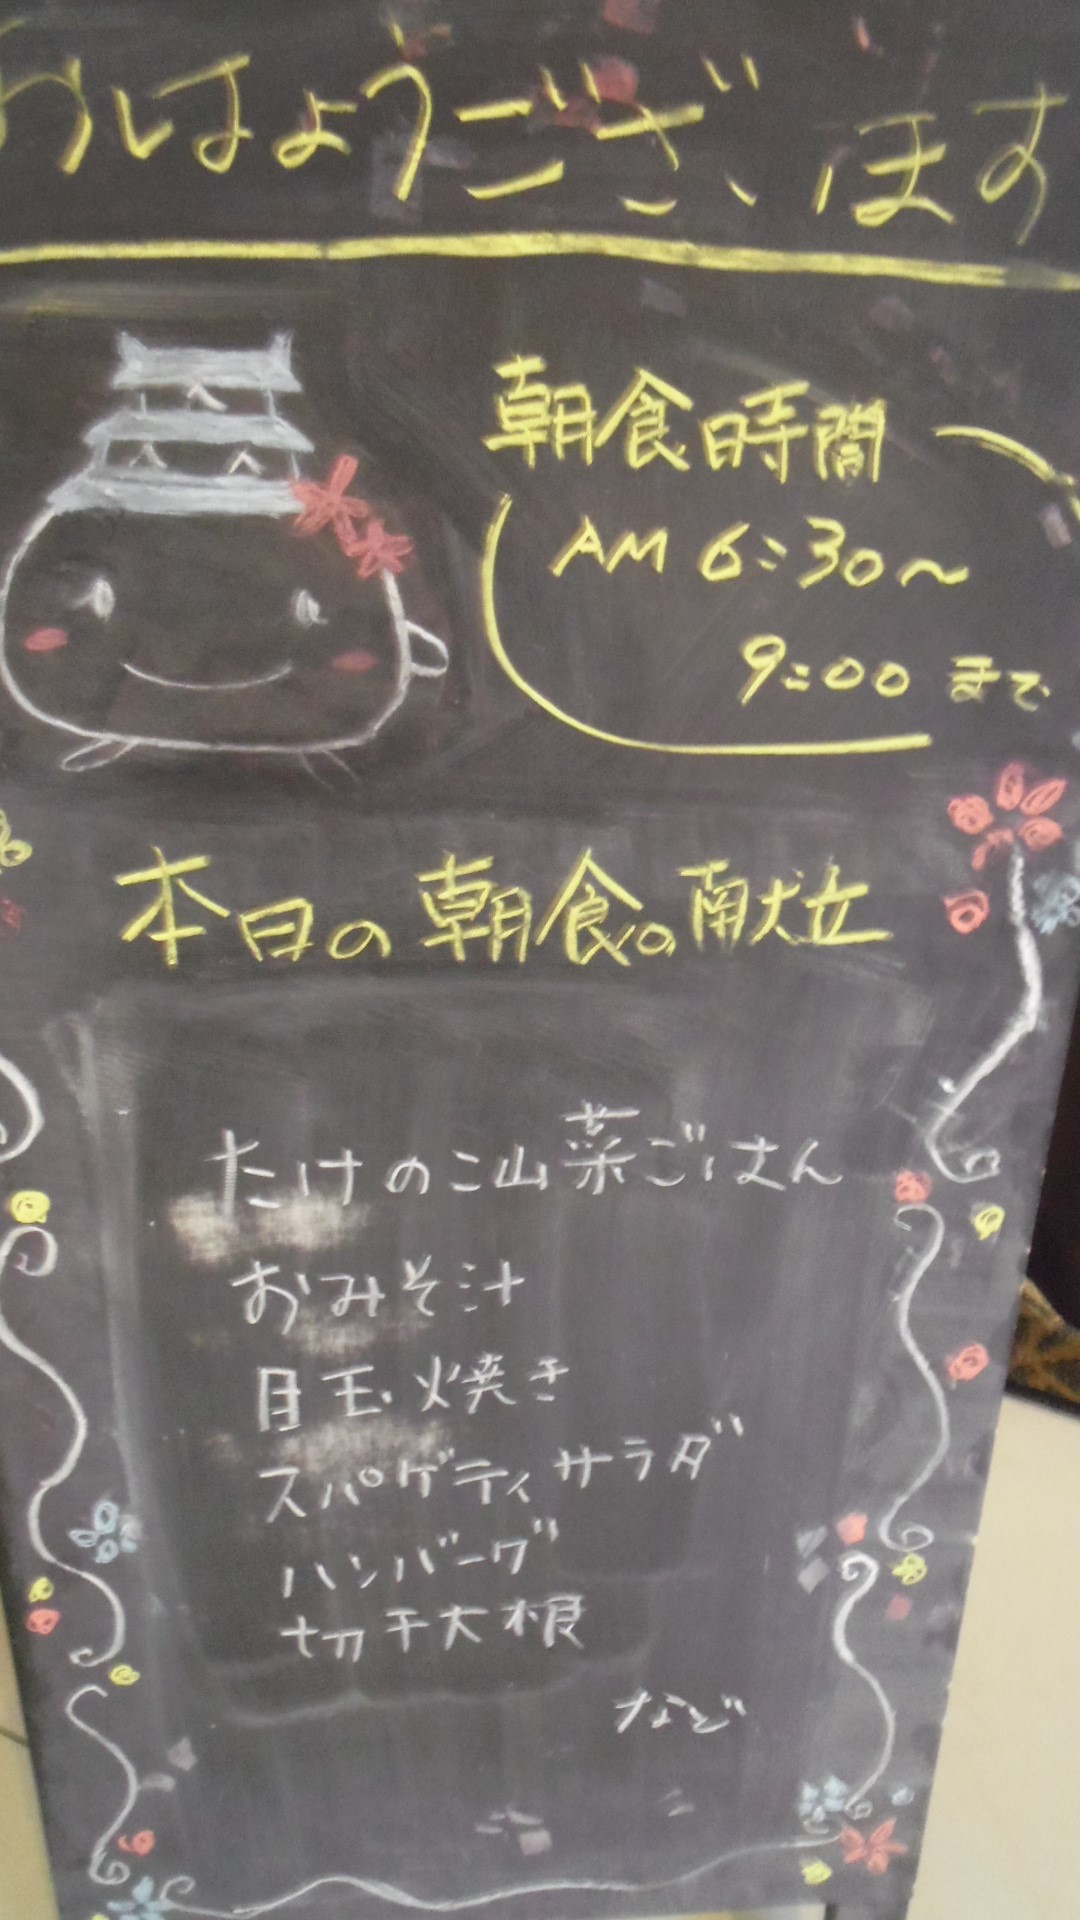 おはようございます
朝食時間
AM 6:30〜
9:00 まで
本日の朝食の献立
たけのこ山菜ごはん
おみそ汁
目玉焼き
スパゲティサラダ
ハンバーグ
切干大根
など